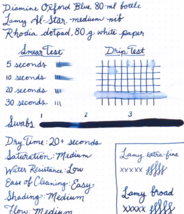 Diamine Oxford Blue 80 ml bottle
Lamy Al-Star - medium nib
Rhodia dotpad, 80 g white paper
Smear Test Drip Test
5 seconds
10 seconds
20 seconds
30 seconds
1 2 3
Swabs
Dry Time: 20+ seconds
Saturation: Medium
Water Resistance: Low
Ease of Cleaning: Easy
Shading: Medium
Flow: Medium
Lamy extra-fine
xxxxx
Lamy broad
xxxxx